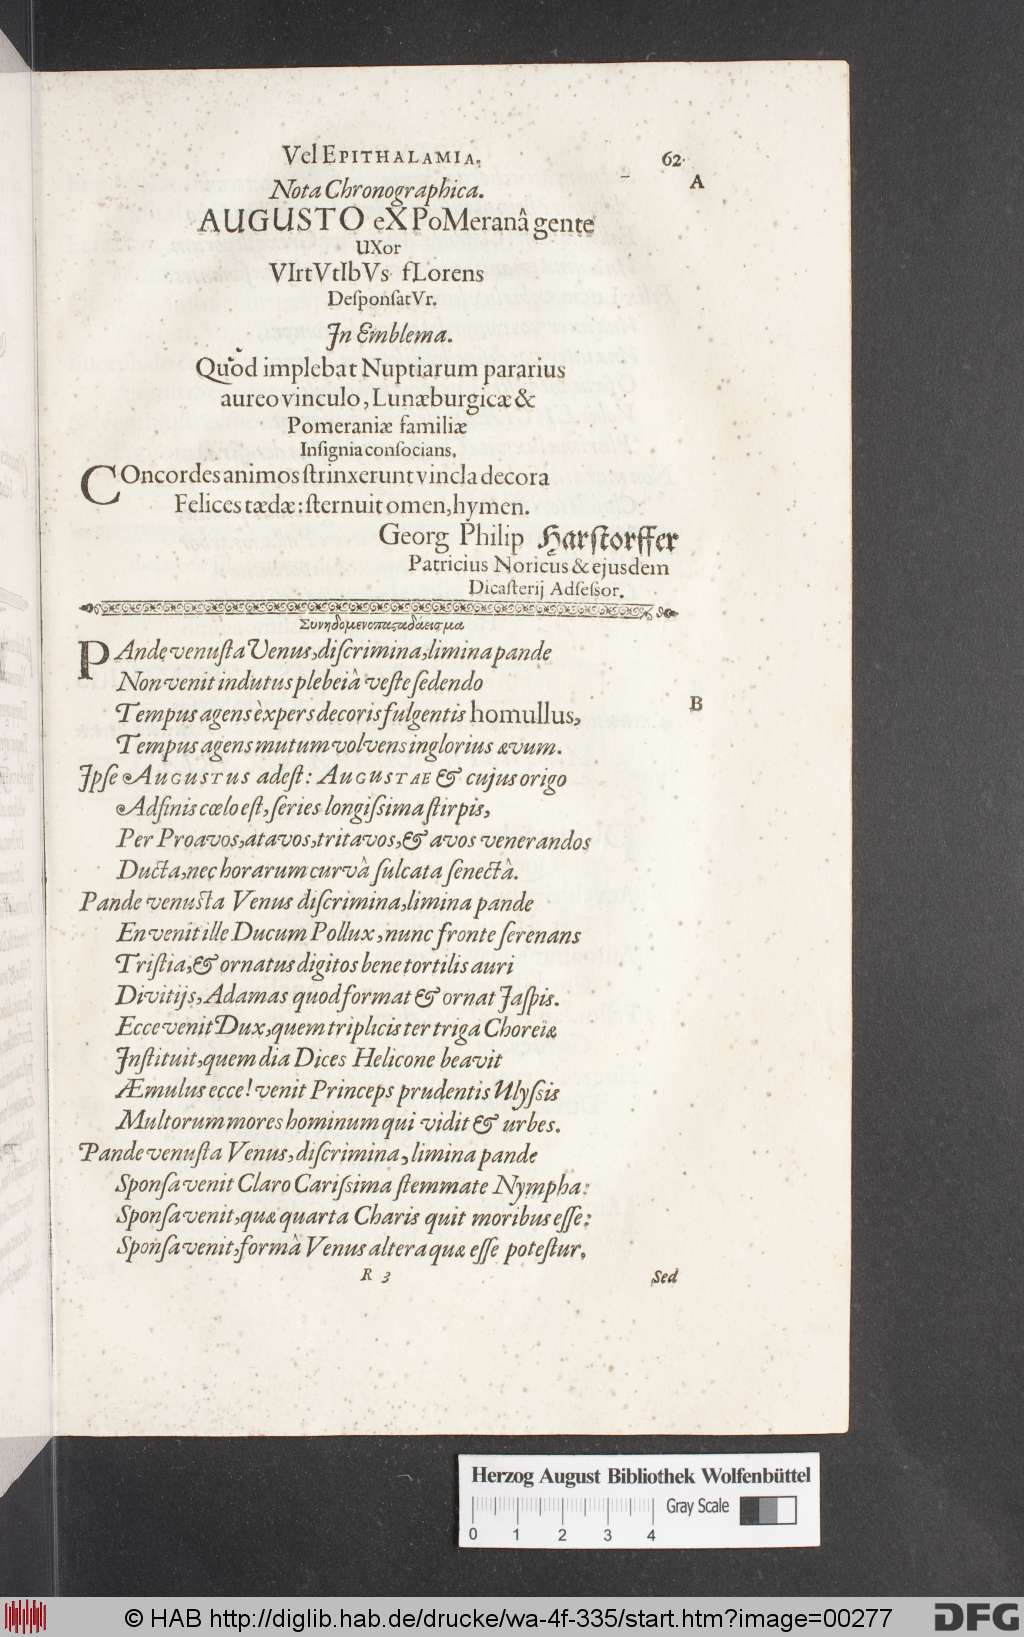 Vel EPITHALAMIA. 62
A
Nota Chronographica.
AUGUSTO eXPoMeranâ gente
UXor
VIrtVtIbVs fLorens
DeſponſatVr.
In Emblema.
Quod implebat Nuptiarum pararius
aureo vinculo, Lunæburgicæ &
Pomeraniæ familiæ
Inſignia conſocians.
COncordes animos ſtrinxerunt vincla decora
Felices tædæ: ſternuit omen, hymen.
Georg Philip Harſtorffer
Patricius Noricus & ejusdem
Dicaſterij Adſeſsor.
PAnde venuſta Venus, diſcrimina, limina pande
Non venit indutus plebeiâ veſte ſedendo
B
Tempus agens èxpers decoris fulgentis homullus,
Tempus agens mutum volvens inglorius ævum.
Ipſe AUGUSTUS adeſt: AUGUSTAE & cujus origo
Adfinis cœlo eſt, ſeries longiſsima ſtirpis,
Per Proavos, atavos, tritavos, & avos venerandos
Ducta, nec horarum curvâ ſulcata ſenectâ.
Pande venuſta Venus diſcrimina, limina pande
En venit ille Ducum Pollux, nunc fronte ſerenans
Triſtia, & ornatus digitos bene tortilis auri
Divitijs, Adamas quod format & ornat Jaſpis.
Ecce venit Dux, quem triplicis ter triga Choreiæ
Inſtituit, quem dia Dices Helicone beavit
Æmulus ecce! venit Princeps prudentis Ulyſsis
Multorum mores hominum qui vidit & urbes.
Pande venuſta Venus, diſcrimina, limina pande
Sponſa venit Claro Cariſsima ſtemmate Nympha:
Sponſa venit, quæ quarta Charis quit moribus eſſe:
Sponſa venit, formâ Venus altera quæ eſſe poteſtur,
R 3 Sed
Herzog August Bibliothek Wolfenbüttel
Gray Scale
0 1 2 3 4
© HAB http://diglib.hab.de/drucke/wa-4f-335/start.htm?image=00277 DFG